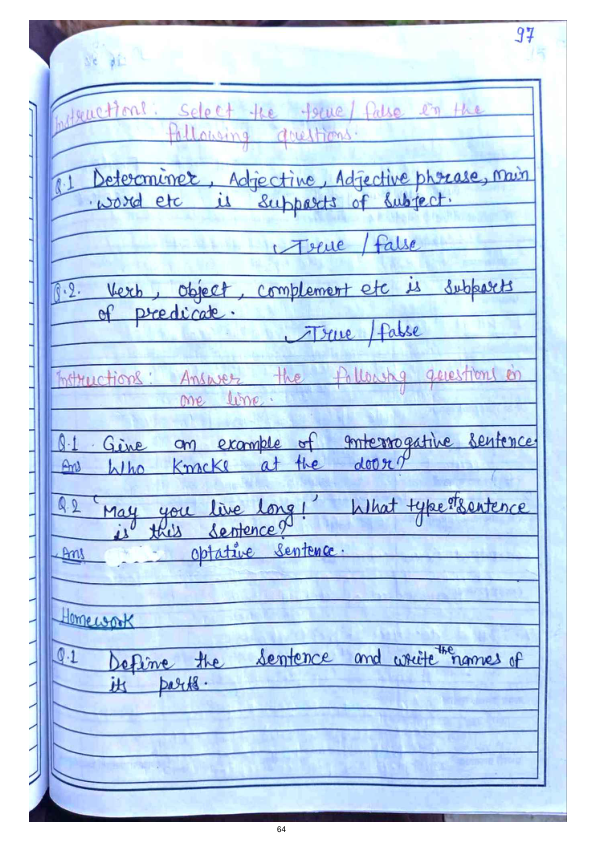 97
Instructions: Select the true/false in the
following questions.
Q.1 Determiner, Adjective, Adjective phrase, main
word etc is supparts of subject.
✓True / false
Q.2. Verb, object, complement etc is subparts
of predicate.
✓True / false
Instructions: Answer the following questions in
one line.
Q.1 Give an example of interrogative sentence.
Ans Who knocks at the door?
Q.2 'May you live long!' What type of sentence
is this sentence?
Ans optative sentence.
Homework
Q.1 Define the sentence and write the names of
its parts.
64